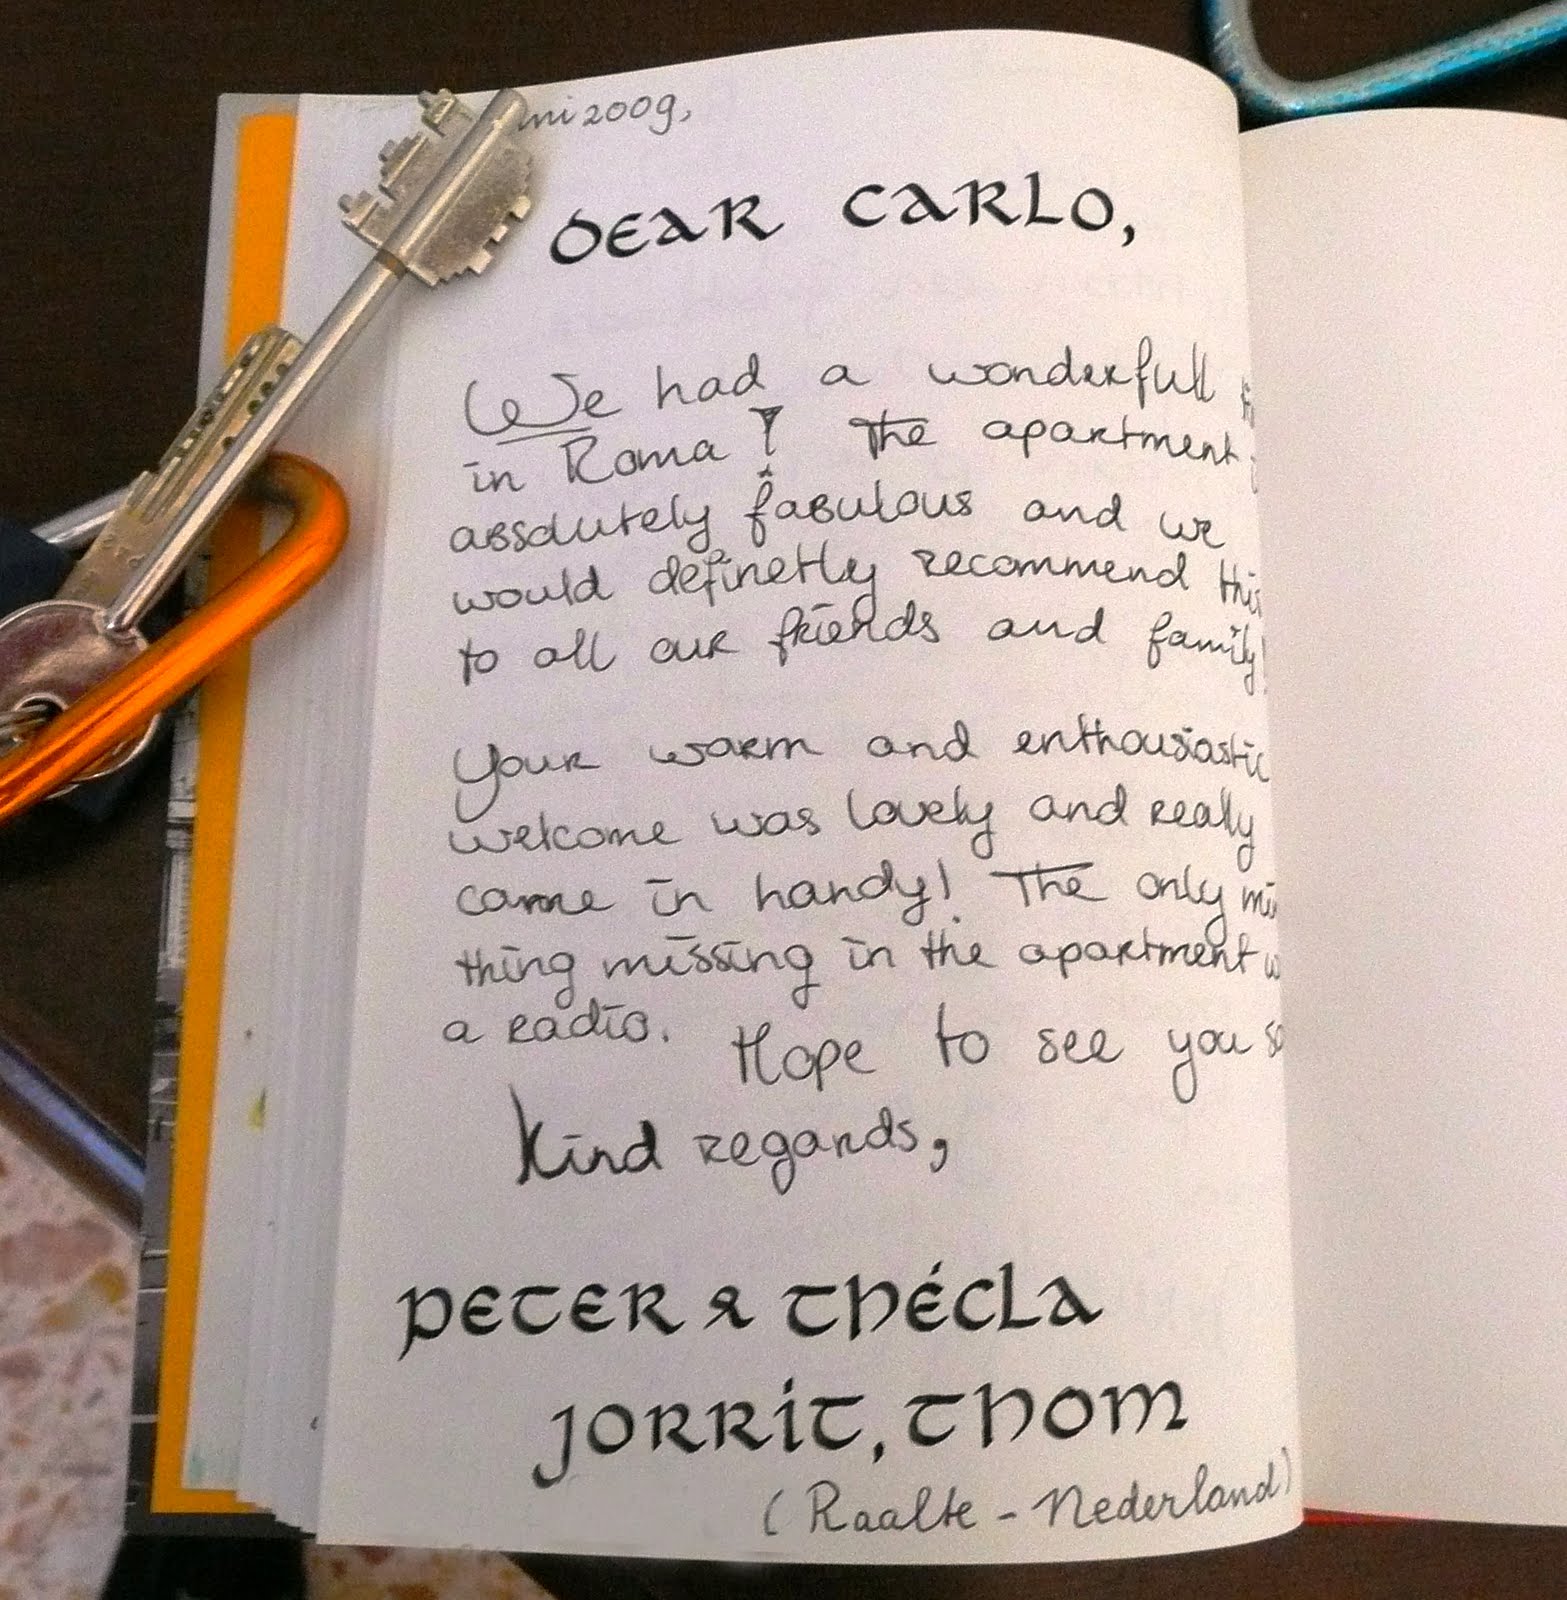 2009,
DEAR CARLO,
We had a wonderfull
in Roma! The apartment
absolutely fabulous and we
would definetly recommend this
to all our friends and family!
Your warm and enthousiastic
welcome was lovely and really
came in handy! The only
thing missing in the apartment
a radio. Hope to see you
Kind regards,
PETER & THÉCLA
JORRIT, THOM
(Raalte - Nederland)